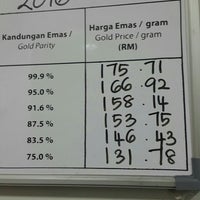 2016
Kandungan Emas / Harga Emas / gram
Gold Parity Gold Price / gram
(RM)
99.9 % 175 . 71
95.0 % 166 . 92
91.6 % 158 . 14
87.5 % 153 . 75
83.5 % 146 . 43
75.0 % 131 . 78